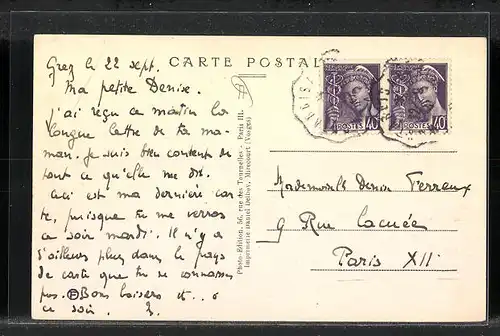 CARTE POSTALE
Grez le 22 sept.
Ma petite Denise.
j'ai reçu ce matin la
longue lettre de ta ma-
man. Je suis bien content de
tout ce qu'elle me dit.
Ceci est ma dernière car
te, puisque tu me verras
ce soir mardi. Il n'y a
d'ailleurs plus dans le pays
de carte que tu ne connaisses
pas. Bons baisers et
ce soir.
Photo-Edition, 56, rue des Tournelles - Paris III.
Imprimerie Daniel Delboy, Mirecourt (Vosges)
POSTES 40
POSTES 40
Mademoiselle Denise Perraux
9 Rue Lacuée
Paris XII